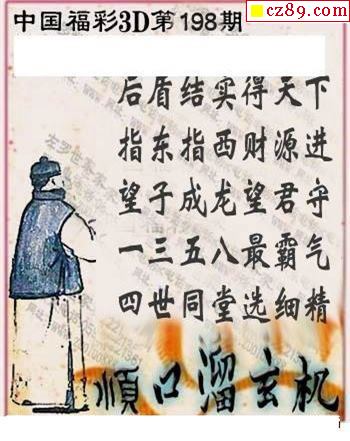 cz89.com
中国福彩3D第198期
后盾结实得天下
指东指西财源进
望子成龙望君守
一三五八最霸气
四世同堂选细精
顺口溜玄机